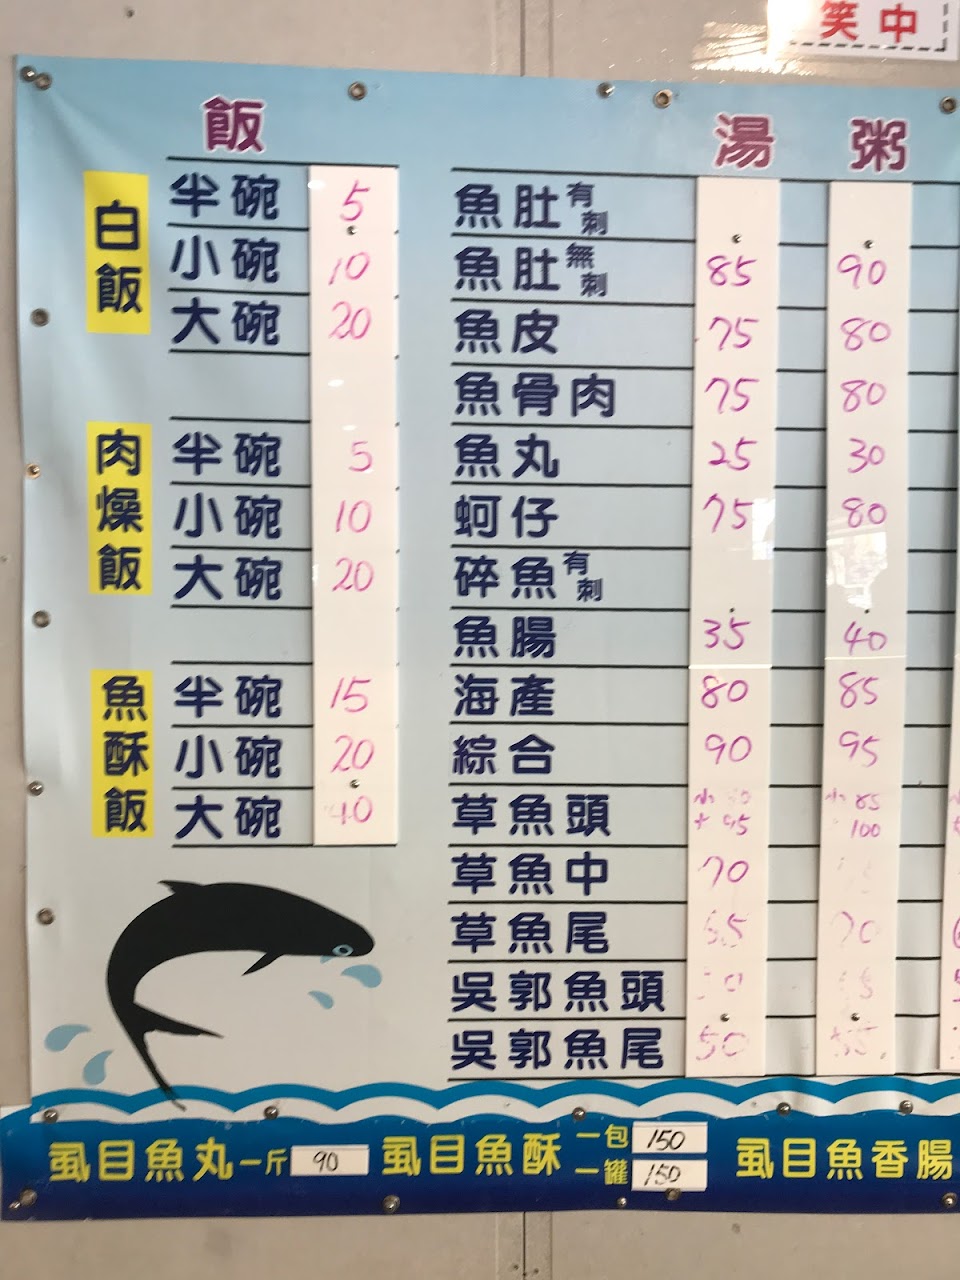 笑中
飯
白飯
半碗 5
小碗 10
大碗 20
肉燥飯
半碗 5
小碗 10
大碗 20
魚酥飯
半碗 15
小碗 20
大碗 40
湯 粥
魚肚有刺
魚肚無刺 85 90
魚皮 75 80
魚骨肉 75 80
魚丸 25 30
蚵仔 75 80
碎魚有刺
魚腸 35 40
海產 80 85
綜合 90 95
草魚頭 小 小 85
大 95 100
草魚中 70
草魚尾 65 70
吳郭魚頭
吳郭魚尾 50
虱目魚丸一斤 90 虱目魚酥 一包 150 一罐 150 虱目魚香腸